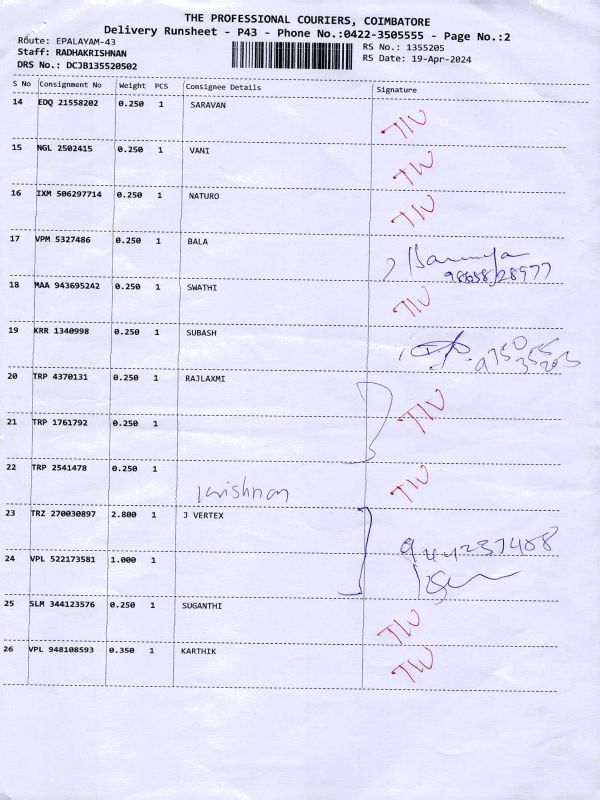 THE PROFESSIONAL COURIERS, COIMBATORE
Delivery Runsheet - P43 - Phone No.:0422-3505555 - Page No.:2
Route: EPALAYAM-43
RS No.: 1355205
Staff: RADHAKRISHNAN
RS Date: 19-Apr-2024
DRS No.: DCJB135520502
S No Consignment No Weight PCS Consignee Details Signature
14 EDQ 21558202 0.250 1 SARAVAN
TIW
15 NGL 2502415 0.250 1 VANI
TIW
16 IXM 506297714 0.250 1 NATURO
TIW
17 VPM 5327486 0.250 1 BALA
18 MAA 943695242 0.250 1 SWATHI
TIW
19 KRR 1340998 0.250 1 SUBASH
20 TRP 4370131 0.250 1 RAJLAXMI
TIW
21 TRP 1761792 0.250 1
22 TRP 2541478 0.250 1
TIW
Krishnan
23 TRZ 270030897 2.800 1 J VERTEX
24 VPL 522173581 1.000 1
25 SLM 344123576 0.250 1 SUGANTHI
TIW
26 VPL 948108593 0.350 1 KARTHIK
TIW